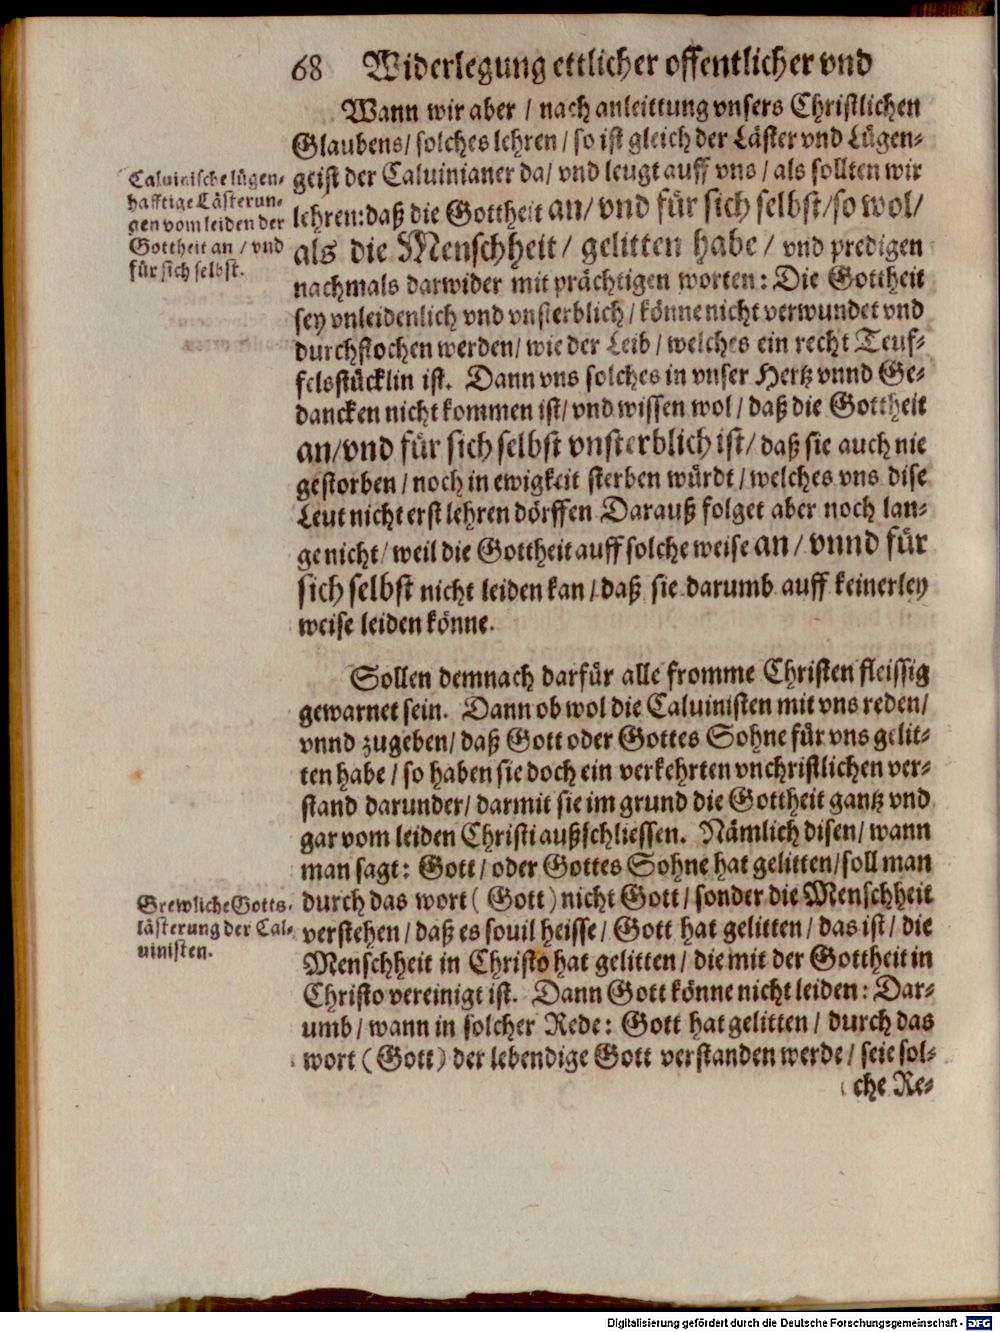 68 Widerlegung ettlicher offentlicher vnd
Wann wir aber / nach anleittung vnsers Christlichen
Glaubens / solches lehren / so ist gleich der Läster vnd Lügen-
geist der Caluinianer da / vnd leugt auff vns / als sollten wir
lehren: daß die Gottheit an / vnd für sich selbst / so wol /
als die Menschheit / gelitten habe / vnd predigen
nachmals darwider mit prächtigen worten: Die Gottheit
sey vnleidenlich vnd vnsterblich / könne nicht verwundet vnd
durchstochen werden / wie der Leib / welches ein recht Teuf-
felsstücklin ist. Dann vns solches in vnser Hertz vnnd Ge-
dancken nicht kommen ist / vnd wissen wol / daß die Gottheit
an / vnd für sich selbst vnsterblich ist / daß sie auch nie
gestorben / noch in ewigkeit sterben würdt / welches vns dise
Leut nicht erst lehren dörffen Darauß folget aber noch lan-
ge nicht / weil die Gottheit auff solche weise an / vnnd für
sich selbst nicht leiden kan / daß sie darumb auff keinerley
weise leiden könne.
Caluinische lügen-
hafftige Lästerun-
gen vom leiden der
Gottheit an / vnd
für sich selbst.
Sollen demnach darfür alle fromme Christen fleissig
gewarnet sein. Dann ob wol die Caluinisten mit vns reden /
vnnd zugeben / daß Gott oder Gottes Sohne für vns gelit-
ten habe / so haben sie doch ein verkehrten vnchristlichen ver-
stand darunder / darmit sie im grund die Gottheit gantz vnd
gar vom leiden Christi außschliessen. Nämlich disen / wann
man sagt: Gott / oder Gottes Sohne hat gelitten / soll man
durch das wort ( Gott ) nicht Gott / sonder die Menschheit
verstehen / daß es souil heisse / Gott hat gelitten / das ist / die
Menschheit in Christo hat gelitten / die mit der Gottheit in
Christo vereinigt ist. Dann Gott könne nicht leiden: Dar-
umb / wann in solcher Rede: Gott hat gelitten / durch das
wort ( Gott ) der lebendige Gott verstanden werde / seie sol-
che Re-
Grewliche Gotts-
lästerung der Cal-
uinisten.
Digitalisierung gefördert durch die Deutsche Forschungsgemeinschaft - DFG